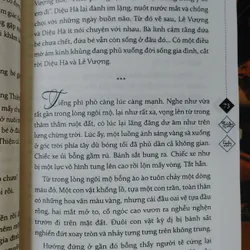 Vượng đi". Diệu Hà lại đành im lặng, nuốt nước mắt và chống
chọi với những ngày buồn não. Từ đó về sau, Lê Vượng
và Diệu Hà ít nói chuyện với nhau. Bà linh cảm rằng đứa
bé chưa chết, đứa bé vẫn còn sống ở đâu đó... Có một điều
mờ ám kinh khủng đang phủ xuống đời sống gia đình, cắt
đứt bà và Lê Vượng.
***
Tiếng phì phò càng lúc càng mạnh. Nghe như vừa
rất gần trong lòng ngôi mộ, lại như rất xa, vọng lên từ trong
thăm thẳm ruột đất, có lúc lại lãng đãng dư âm như trên
lưng chừng trời. Lúc ấy, một luồng ánh sáng vàng xỉ xuống ở
góc trời phía tây dù bóng tối đã phủ dần cả không gian.
Chiếc xe ủi bỗng gầm lên. Bánh sắt bung ra. Chiếc xe như
bị một lực vô hình tung lên cao rồi lộn mấy vòng. Tắt hẳn.
Từ trong lòng ngôi mộ bỗng ào ào tuôn chảy một dòng
máu đỏ. Một con vật khổng lồ, tựa như con trăn, toàn thân
có những hoa văn màu vàng, nhưng cái đầu oai vệ tựa như
đầu con hổ, cổ rất to, cổ ngạo cao vươn ra nghễu nghện
trườn đi trên mặt đất. Đuôi con vật kỳ dị bị bánh sắt
nghiến đứt vẫn còn đang rỉ máu.
Hướng đứng ở gần đó bỗng thấy người tê cứng lại.